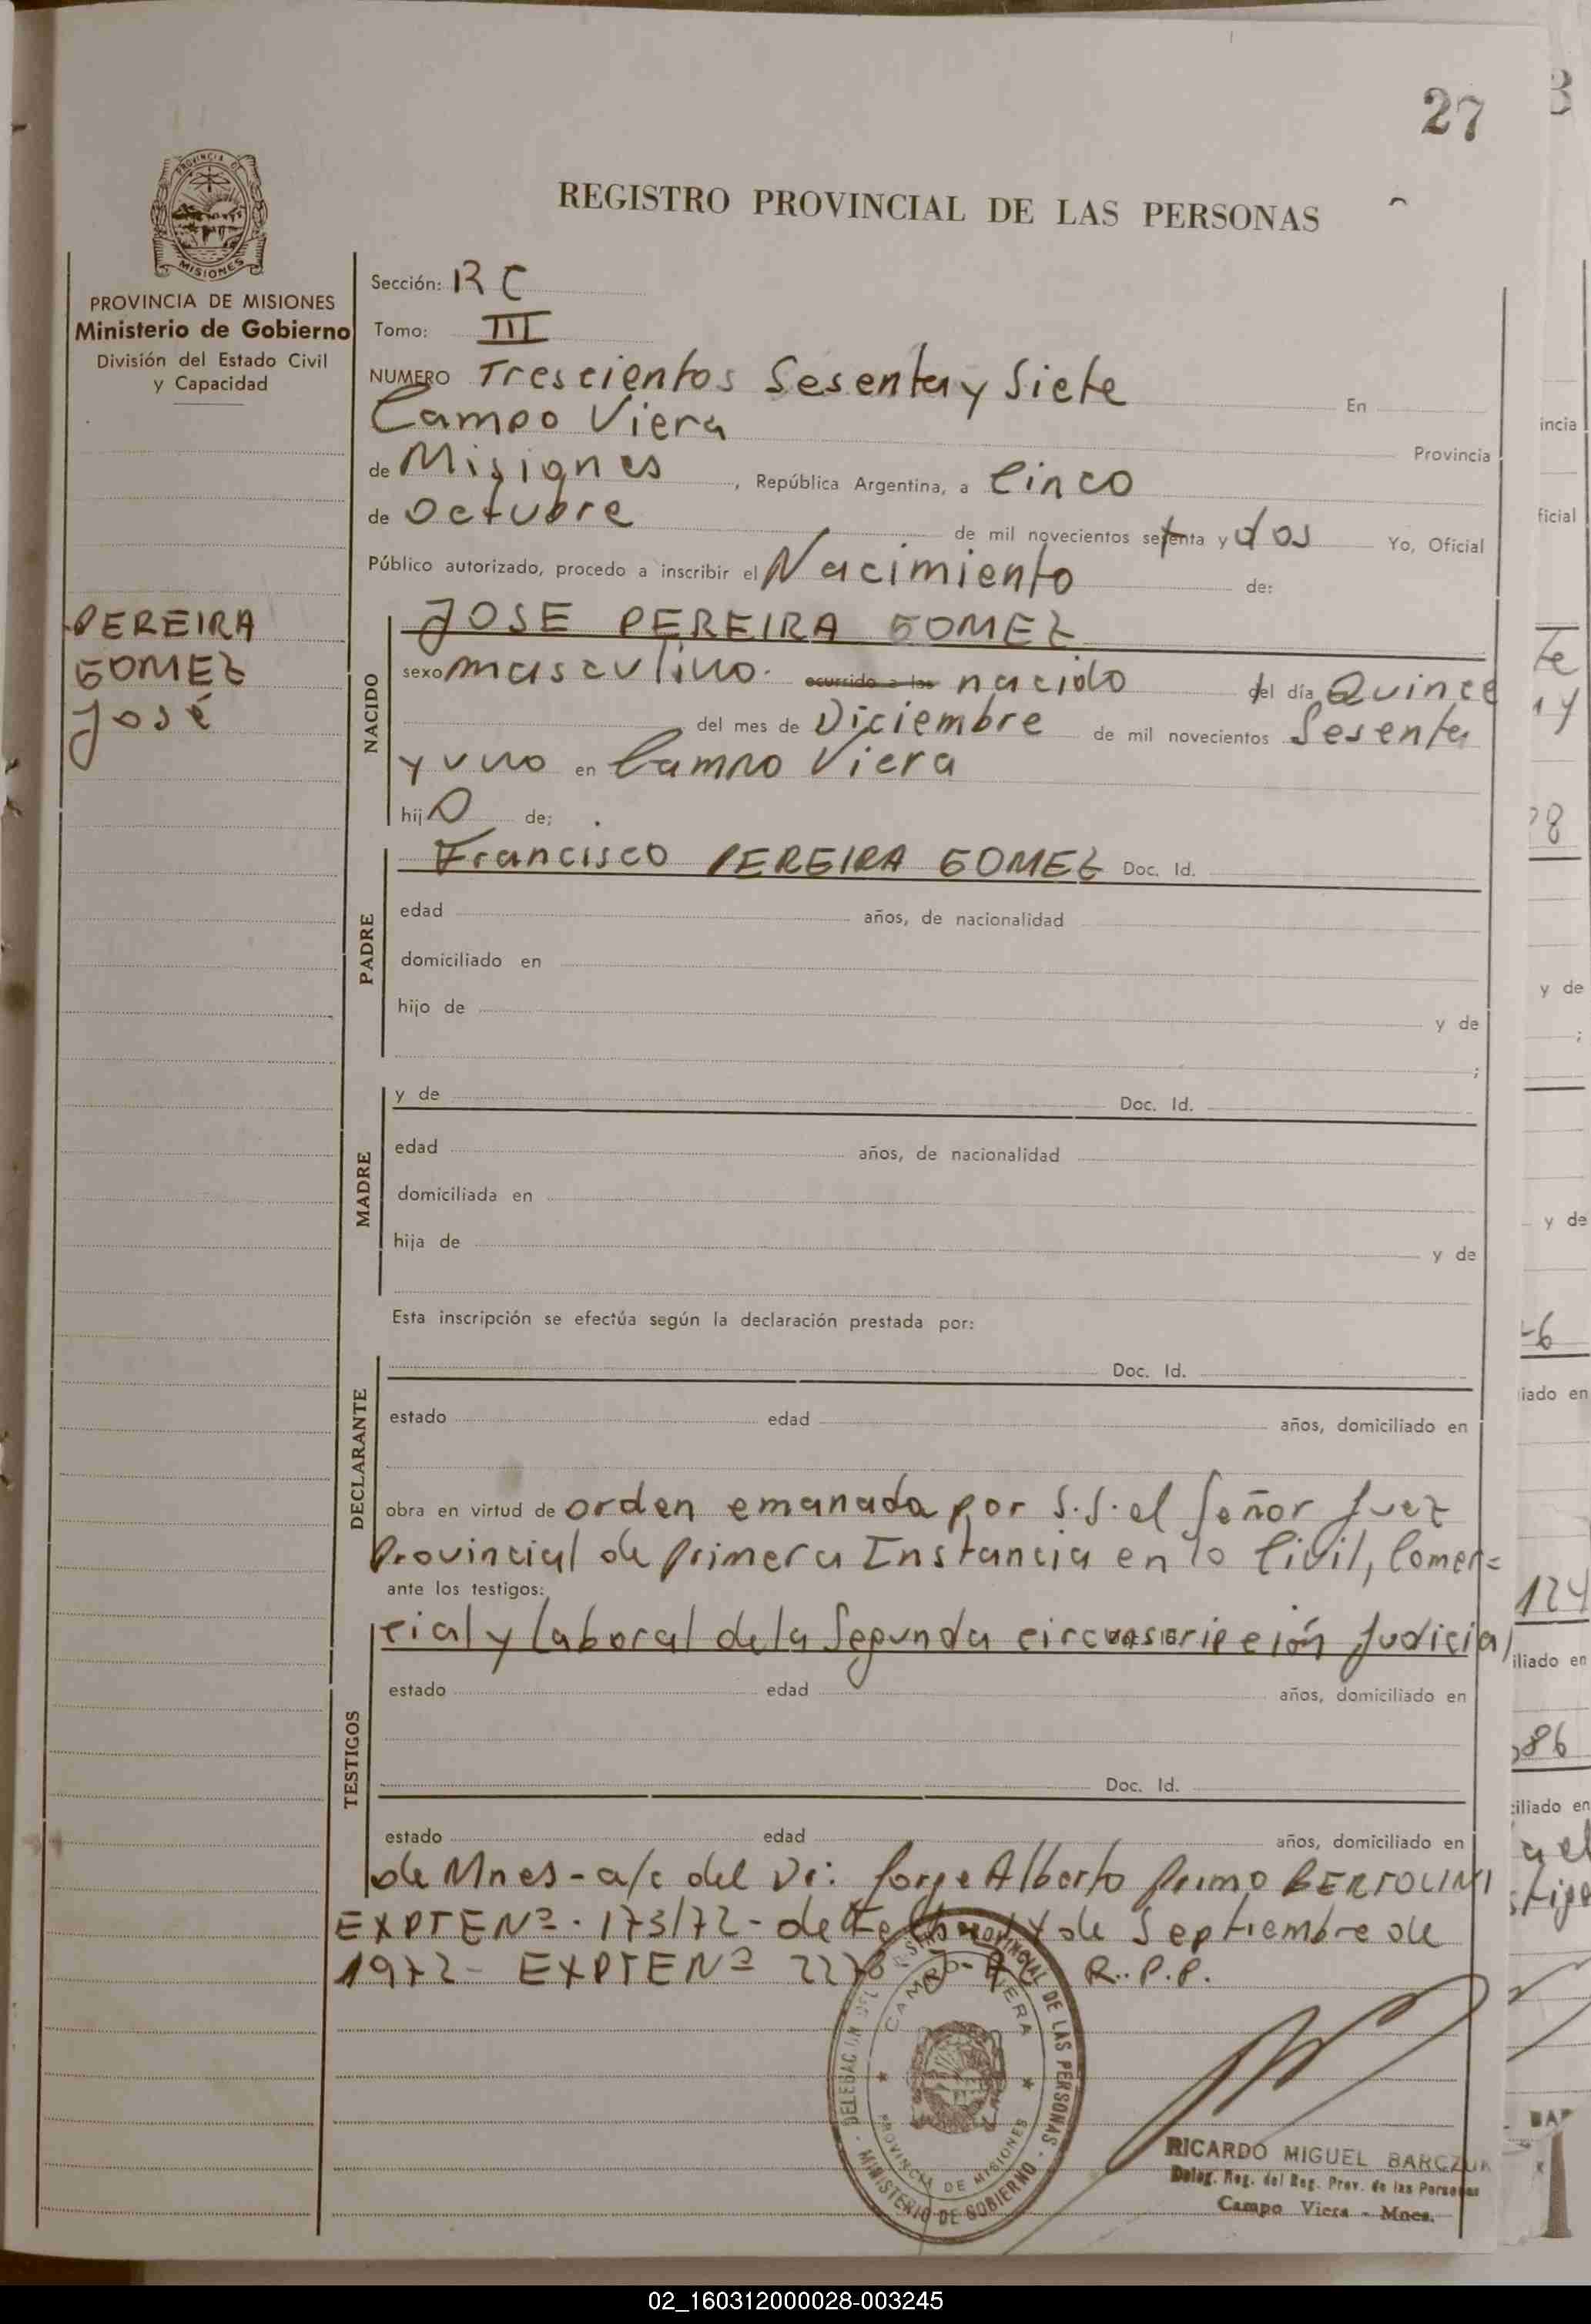 27
PROVINCIA DE
MISIONES
REGISTRO PROVINCIAL DE LAS PERSONAS
PROVINCIA DE MISIONES
Ministerio de Gobierno
División del Estado Civil
y Capacidad
Sección: RC
Tomo: III
NUMERO Trescientos Sesenta y Siete En
Campo Viera Provincia
de Misiones, República Argentina, a Cinco
de Octubre de mil novecientos setenta y dos Yo, Oficial
Público autorizado, procedo a inscribir el Nacimiento de:
PEREIRA
GOMEZ
José
NACIDO
JOSE PEREIRA GOMEZ
sexo masculino. ocurrido a las nacido del día Quince
del mes de Diciembre de mil novecientos Sesenta
y uno en Campo Viera
hijO de:
PADRE
Francisco PEREIRA GOMEZ Doc. Id.
edad años, de nacionalidad
domiciliado en
hijo de y de
;
MADRE
y de Doc. Id.
edad años, de nacionalidad
domiciliada en
hija de y de
Esta inscripción se efectúa según la declaración prestada por:
DECLARANTE
Doc. Id.
estado edad años, domiciliado en
obra en virtud de orden emanada por S.S. el Señor Juez
Provincial de Primera Instancia en lo Civil, Comer=
ante los testigos:
cial y laboral de la Segunda circunscripción Judicial
TESTIGOS
estado edad años, domiciliado en
Doc. Id.
estado edad años, domiciliado en
de Mnes - a/c del Dr. Jorge Alberto Primo BERTOLINI
EXPTE Nº. 173/72 - de de Septiembre de
1972 - EXPTE Nº R.P.P.
DELEGACION DEL REGISTRO PROVINCIAL DE LAS PERSONAS
CAMPO VIERA
PROVINCIA DE MISIONES
MINISTERIO DE GOBIERNO
RICARDO MIGUEL BARCZUK
Deleg. Reg. del Reg. Prov. de las Personas
Campo Viera - Mnes.
02_160312000028-003245